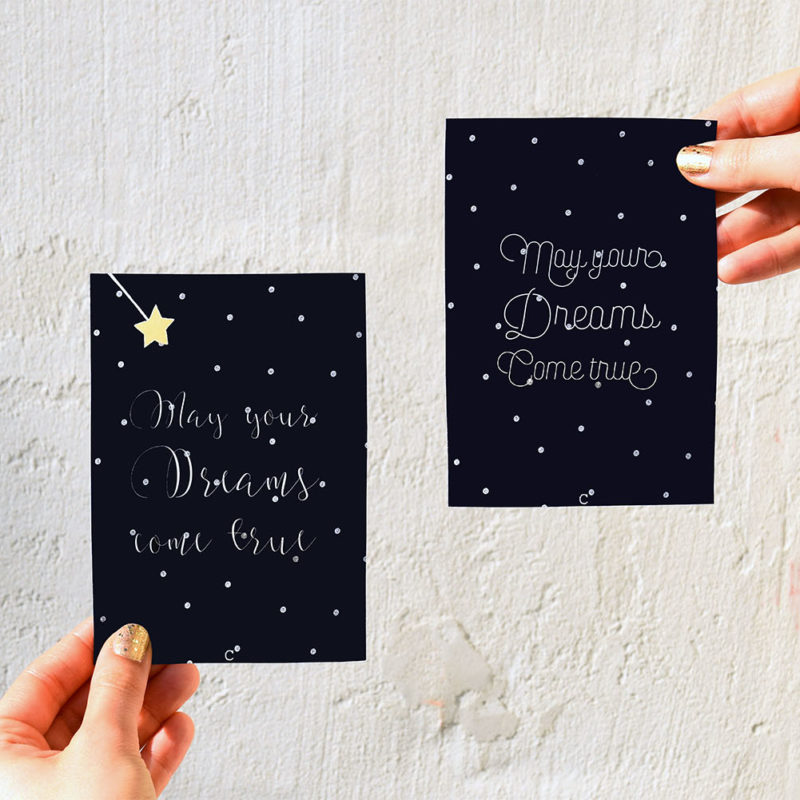 May your
Dreams
come true
C
May your
Dreams
Come true
C